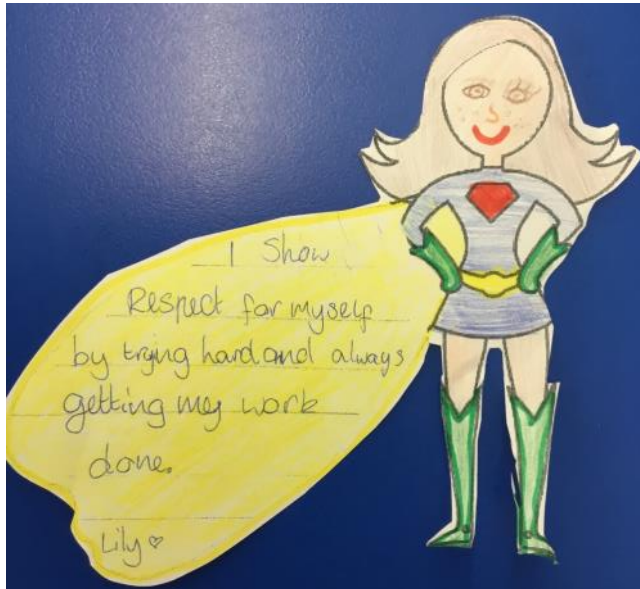 I Show
Respect for myself
by trying hard and always
getting my work
done.
Lily ♡